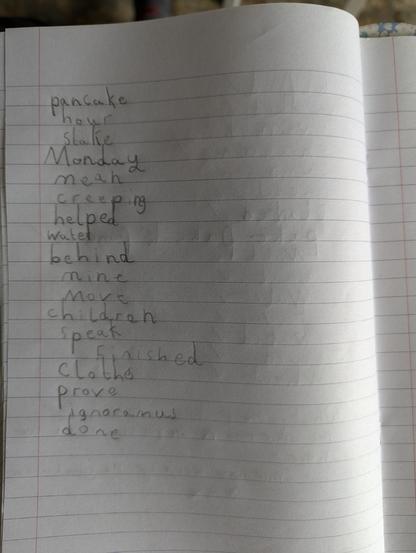 pancake
hour
stake
Monday
mean
creeping
helped
water
behind
mine
Move
children
speak
finished
Cloths
prove
ignoramus
done